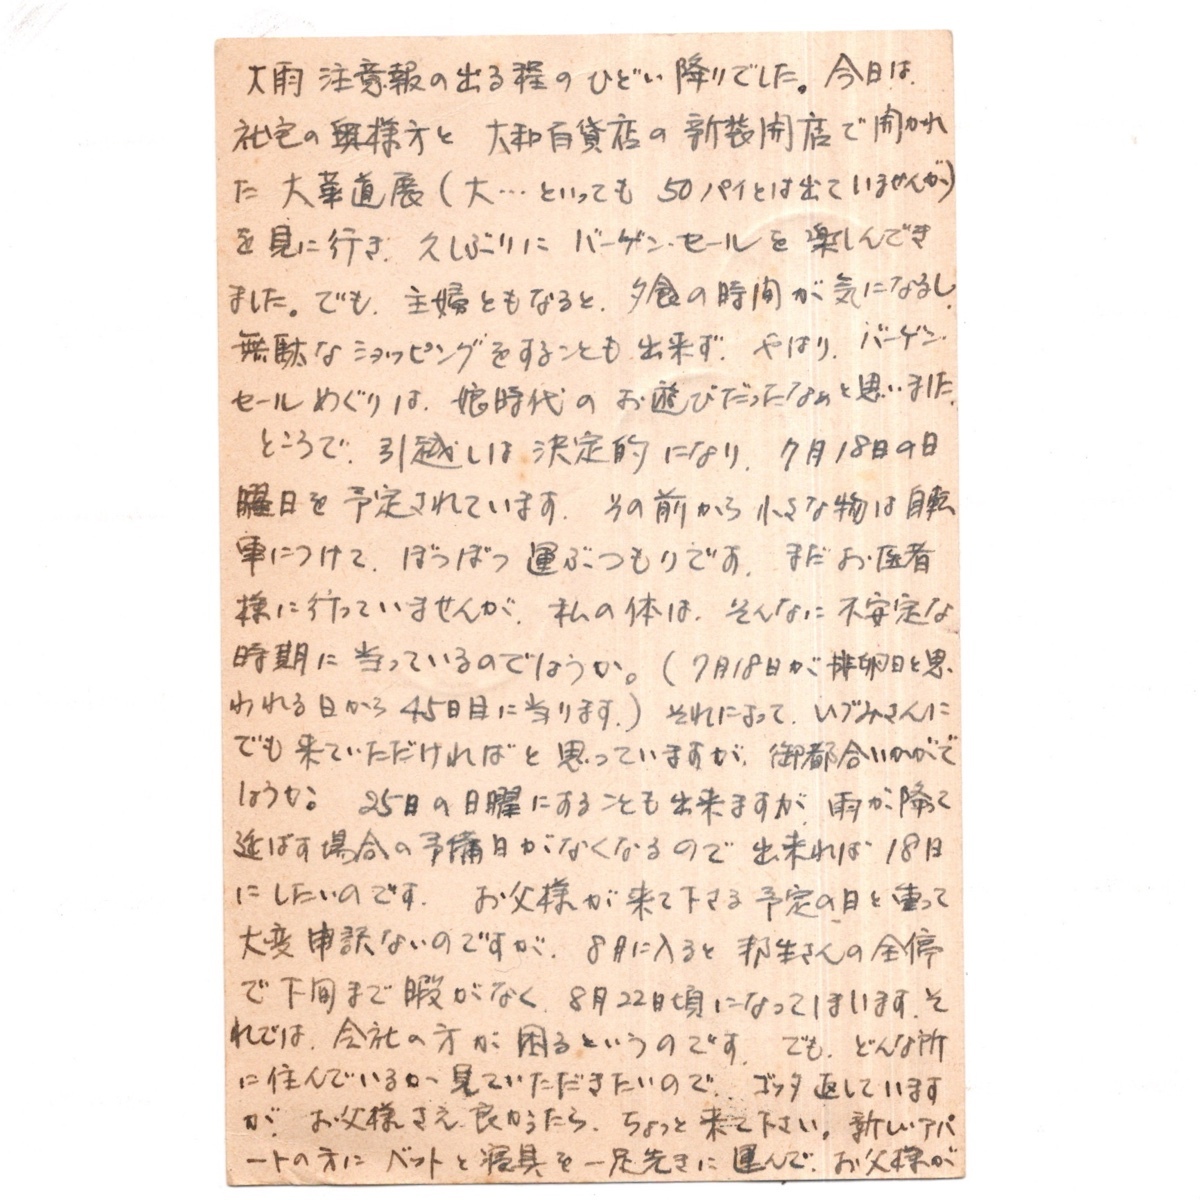 大雨注意報の出る程のひどい降りでした。今日は、
社宅の奥様方と 大和百貨店の新装開店で開かれ
た 大華道展(大…といっても 50パイとは出ていませんが)
を見に行き、久しぶりに バーゲン・セールを楽しんでき
ました。でも、主婦ともなると、夕食の時間が気になるし、
無駄なショッピングをすることも出来ず、やはり、バーゲン・
セールめぐりは、娘時代のお遊びだったなぁと思いました。
ところで、引越しは決定的になり、7月18日の日
曜日を予定されています。その前から小さな物は自転
車につけて、ぼつぼつ運ぶつもりです。まだお医者
様に行っていませんが、私の体は、そんなに不安定な
時期に当っているのでしょうか。(7月18日が排卵日と思
われる日から45日目に当ります。)それによって、いづみさんに
でも来ていただければと思っていますが、御都合いかがで
しょうか。 25日の日曜にすることも出来ますが、雨が降って
延ばす場合の予備日がなくなるので出来れば18日
にしたいのです。 お父様が来て下さる予定の日と重って
大変申訳ないのですが、8月に入ると邦生さんの全停
で下旬まで暇がなく、8月22日頃になってしまいます。そ
れでは、会社の方が困るというのです。でも、どんな所
に住んでいるか見ていただきたいので、ゴッタ返しています
が、お父様さえ良かったら、ちょっと来て下さい。新しいアパ
ートの方に ベットと寝具を一足先きに運んで、お父様が